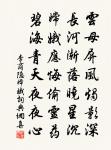 雲母屏風燭影深
長河漸落曉星沉
嫦娥應悔偷靈藥
碧海青天夜夜心
李商隱嫦娥詞典網集